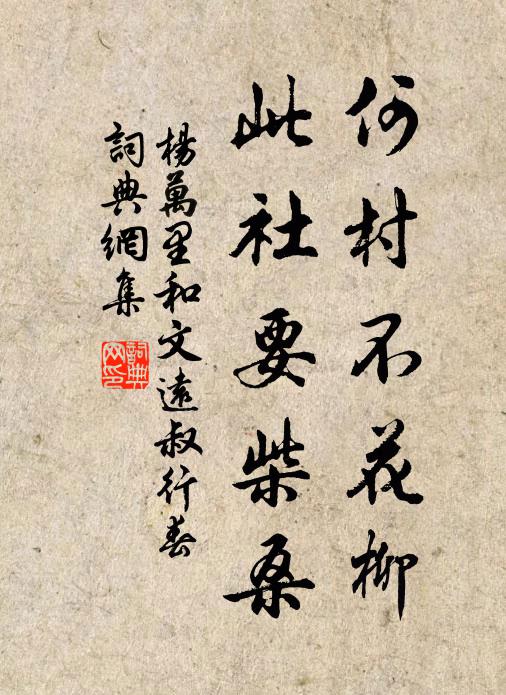 何村不花柳
此社要柴桑
楊萬里和文遠叔行春
詞典網集
詞典網印